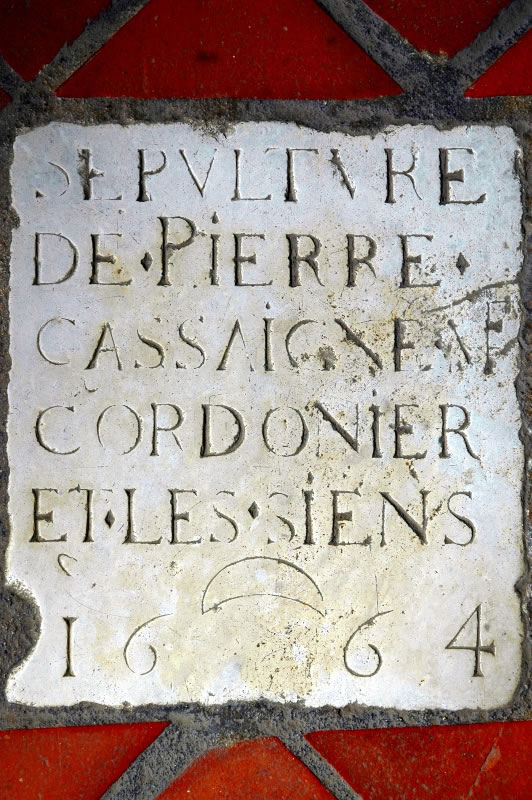 SEPVLTVRE
DE·PiERRE·
CASSAiGNE·ME
CORDONiER
ET·LES·SiENS
1664